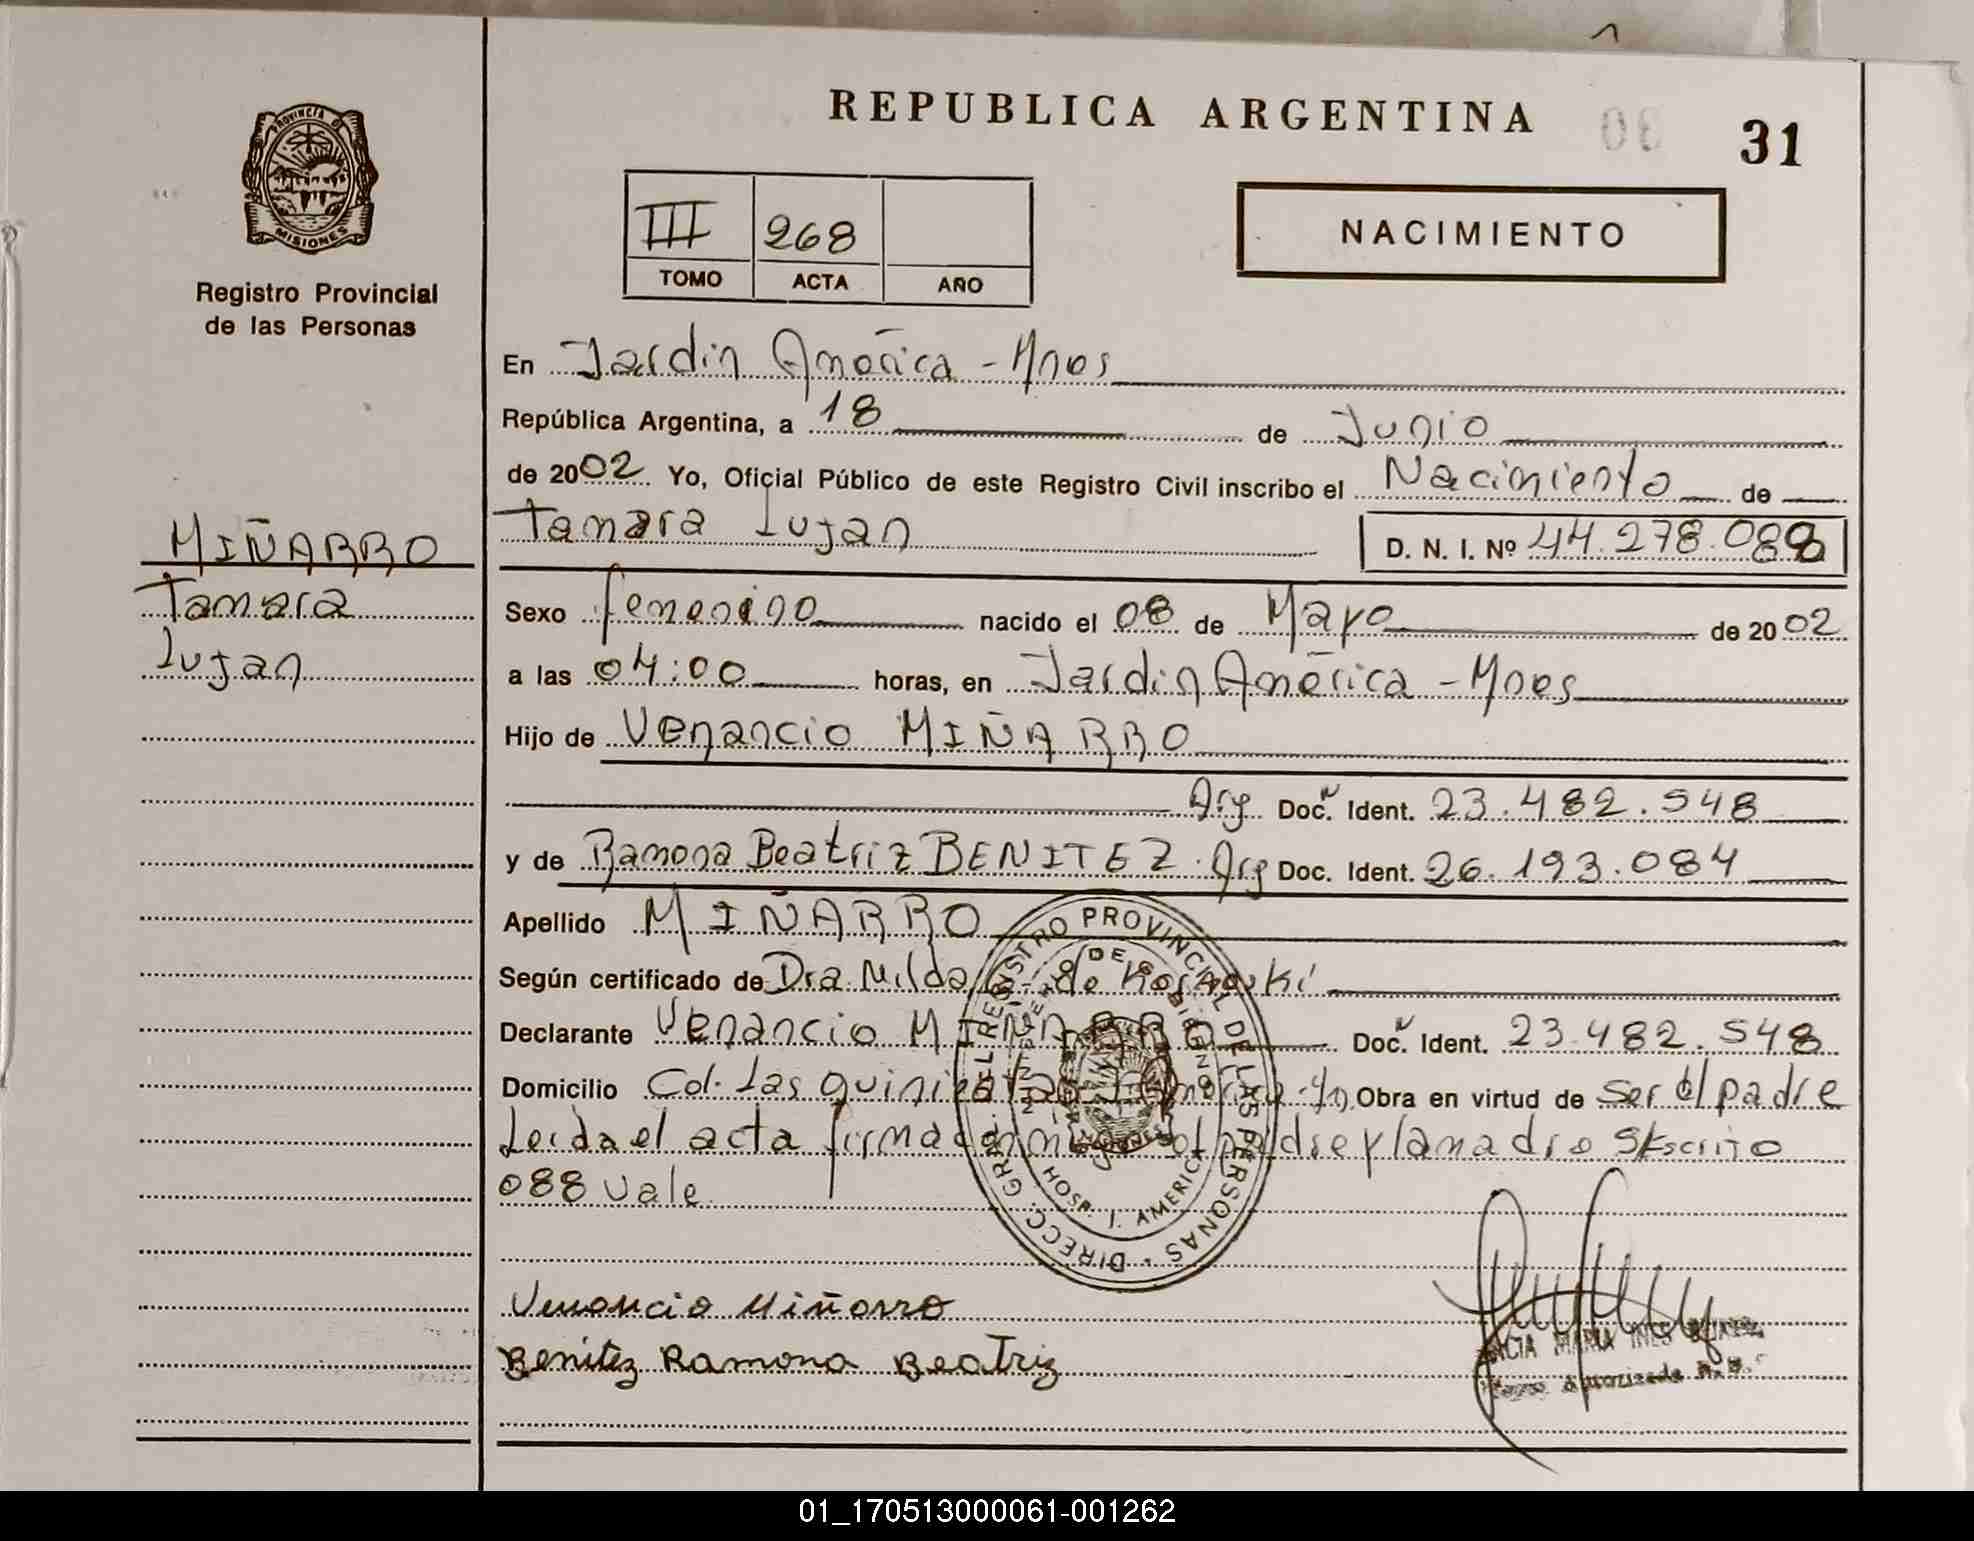 REPUBLICA ARGENTINA
31
PROVINCIA DE
MISIONES
Registro Provincial
de las Personas
III 268
TOMO ACTA AÑO
NACIMIENTO
En Jardín América - Mnes
República Argentina, a 18 de Junio
de 2002 Yo, Oficial Público de este Registro Civil inscribo el Nacimiento de
Tamara Lujan D. N. I. Nº 44.278.088
MIÑARRO
Tamara
Lujan
Sexo femenino nacido el 08 de Mayo de 2002
a las 04:00 horas, en Jardín América - Mnes
Hijo de Venancio MIÑARRO
Arg Doc. Ident. 23.482.548
y de Ramona Beatriz BENITEZ. Arg Doc. Ident. 26.193.084
Apellido MIÑARRO
Según certificado de Dra. Nilda de
Declarante Venancio MIÑARRO Doc. Ident. 23.482.548
Domicilio Col. Las quinientas Obra en virtud de ser el padre
Leida el acta firman conmigo el padre y la madre S/Escrito
088 vale
DIRECC. GRAL. DEL REGISTRO PROVINCIAL DE LAS PERSONAS
HOSP. J. AMERICA
Venancio Miñarro
Benitez Ramona Beatriz
MARIA INES
Autorizada
01_170513000061-001262